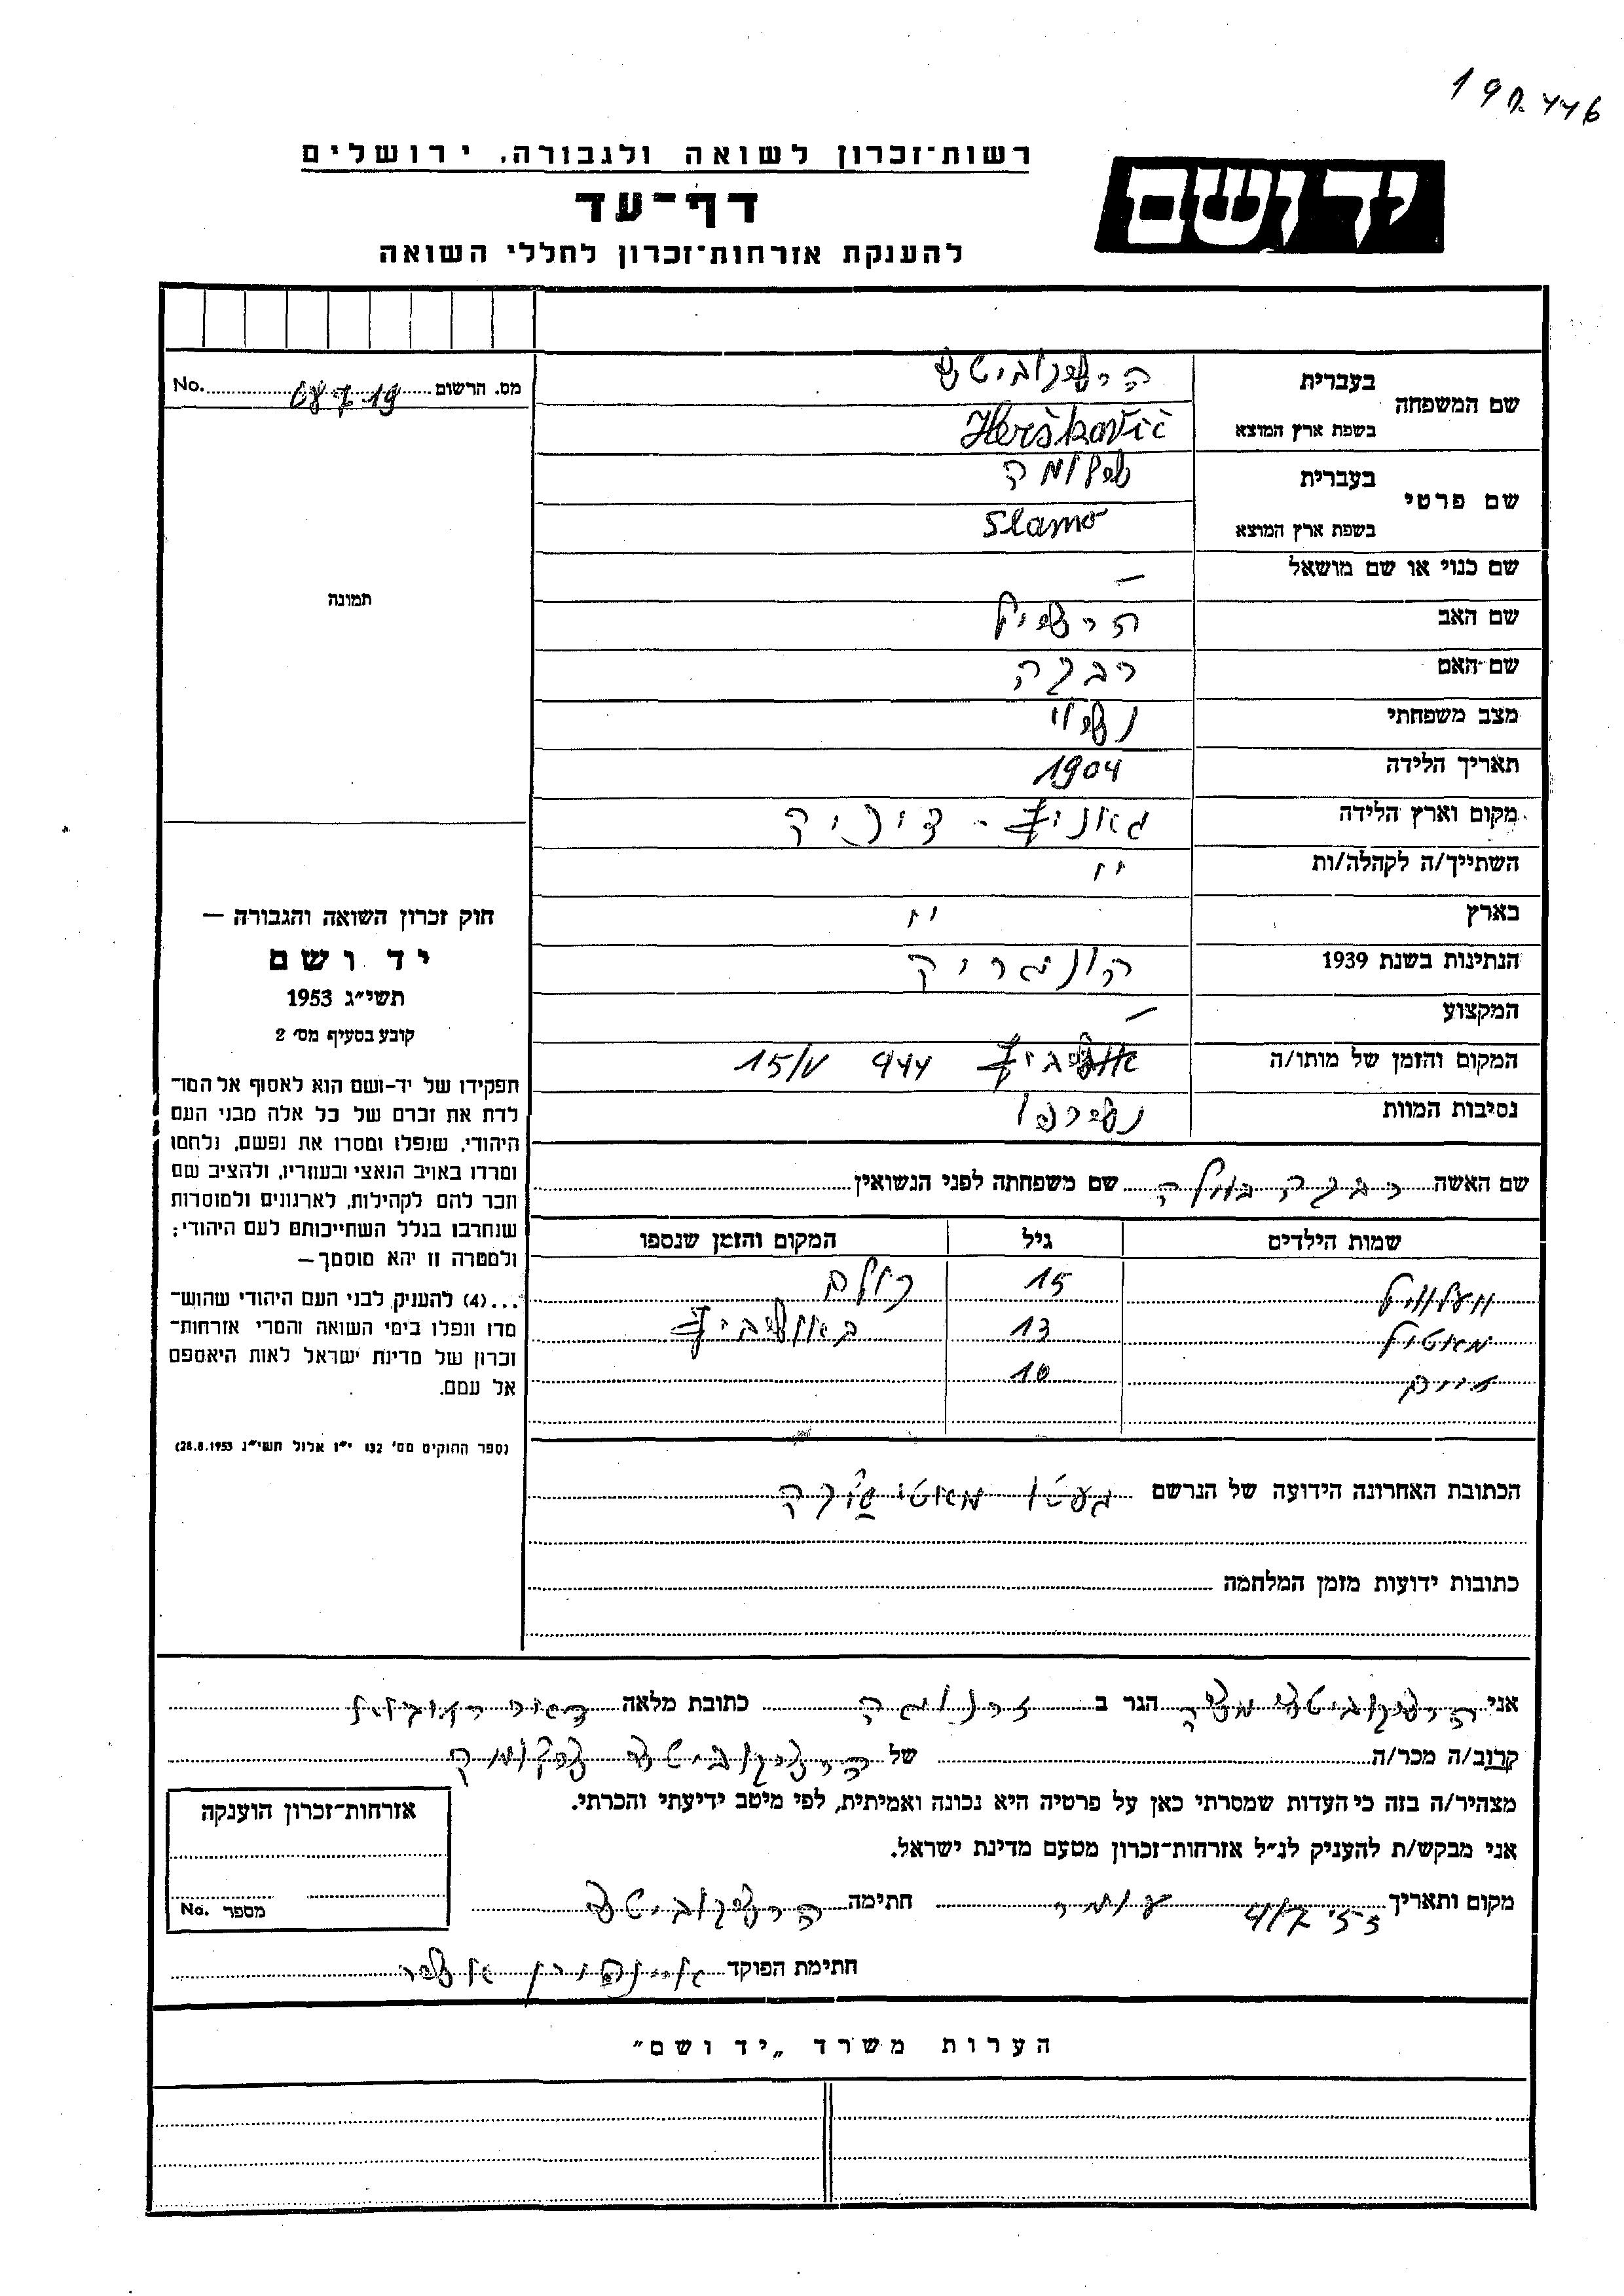 רשות־זכרון לשואה ולגבורה, ירושלים
יד ושם
דף־עד
להענקת אזרחות־זכרון לחללי השואה
מס. הרשום No.
תמונה
חוק זכרון השואה והגבורה —
יד ושם
תשי״ג 1953
קובע בסעיף מס׳ 2
תפקידו של יד-ושם הוא לאסוף אל המו־
לדת את זכרם של כל אלה מבני העם
היהודי, שנפלו ומסרו את נפשם, נלחמו
ומרדו באויב הנאצי ובעוזריו, ולהציב שם
וזכר להם לקהילות, לארגונים ולמוסדות
שנחרבו בגלל השתייכותם לעם היהודי;
ולמטרה זו יהא מוסמך—
...(4) להעניק לבני העם היהודי שהוש־
מדו ונפלו בימי השואה והמרי אזרחות־
זכרון של מדינת ישראל לאות היאספם
אל עמם.
(ספר החוקים מס׳ 132 י״ז אלול תשי״ג 28.8.1953)
שם המשפחה בעברית הרשקוביטש
בשפת ארץ המוצא Herškovič
שם פרטי בעברית שלומה
בשפת ארץ המוצא Slamo
שם כנוי או שם מושאל —
שם האב הרשיל
שם האם רבקה
מצב משפחתי נשוי
תאריך הלידה 1904
מקום וארץ הלידה
השתייך/ה לקהלה/ות ״
בארץ ״
הנתינות בשנת 1939 הונגריה
המקצוע —
המקום והזמן של מותו/ה אושביץ 944 15/V
נסיבות המוות נשרפו
שם האשה רבקה שם משפחתה לפני הנשואין
שמות הילדים גיל המקום והזמן שנספו
15 כולם
13 באושביץ
חיים 10
הכתובת האחרונה הידועה של הנרשם געטו
כתובות ידועות מזמן המלחמה
אני הרשקוביטש משה הגר ב זרנוגה כתובת מלאה
קרוב/ה מכר/ה של הרשקוביטש שלומה
מצהיר/ה בזה כי העדות שמסרתי כאן על פרטיה היא נכונה ואמיתית, לפי מיטב ידיעתי והכרתי.
אני מבקש/ת להעניק לנ״ל אזרחות־זכרון מטעם מדינת ישראל.
מקום ותאריך חתימה הרשקוביטש
חתימת הפוקד
אזרחות־זכרון הוענקה
מספר No.
הערות משרד „יד ושם״